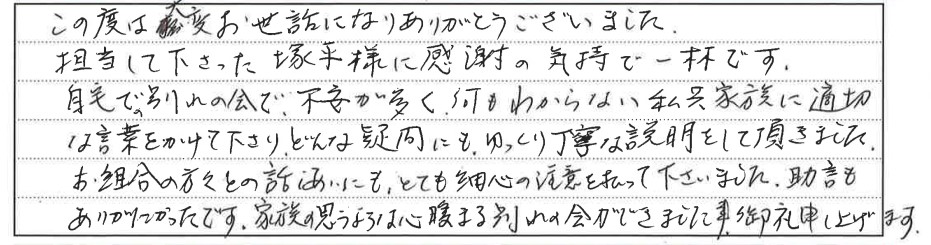 この度は大変お世話になりありがとうございました.
担当して下さった塚平様に感謝の気持で一杯です.
自宅での別れの会で、不安が多く、何もわからない私共家族に適切
な言葉をかけて下さり、どんな疑問にも、ゆっくり丁寧な説明をして頂きました.
お組合の方々との話し合いにも、とても細心の注意を払って下さいました. 助言も
ありがたかったです. 家族の思うような心暖まる別れの会ができました. 御礼申し上げます.